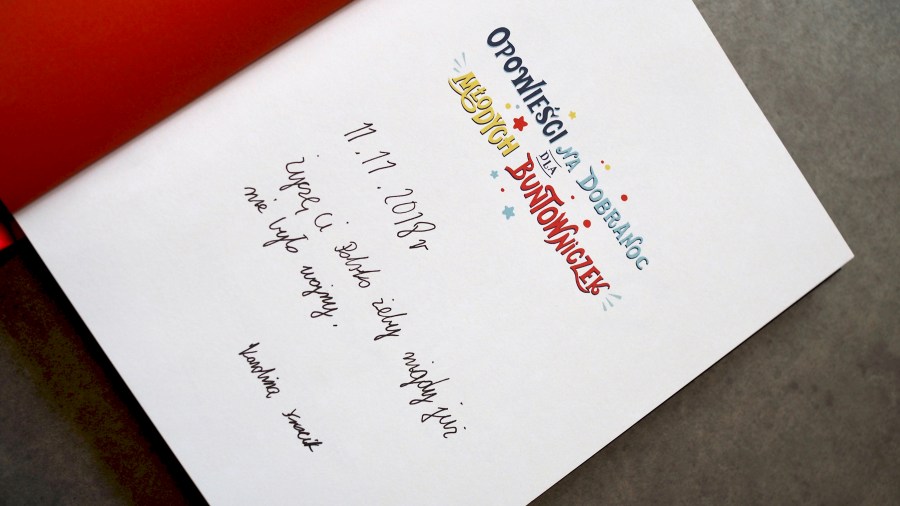 OPOWIEŚCI NA DOBRANOC
DLA
MŁODYCH BUNTOWNICZEK
11.11.2018 r
Życzę Ci Polsko żeby nigdy już
nie było wojny.
Karolina